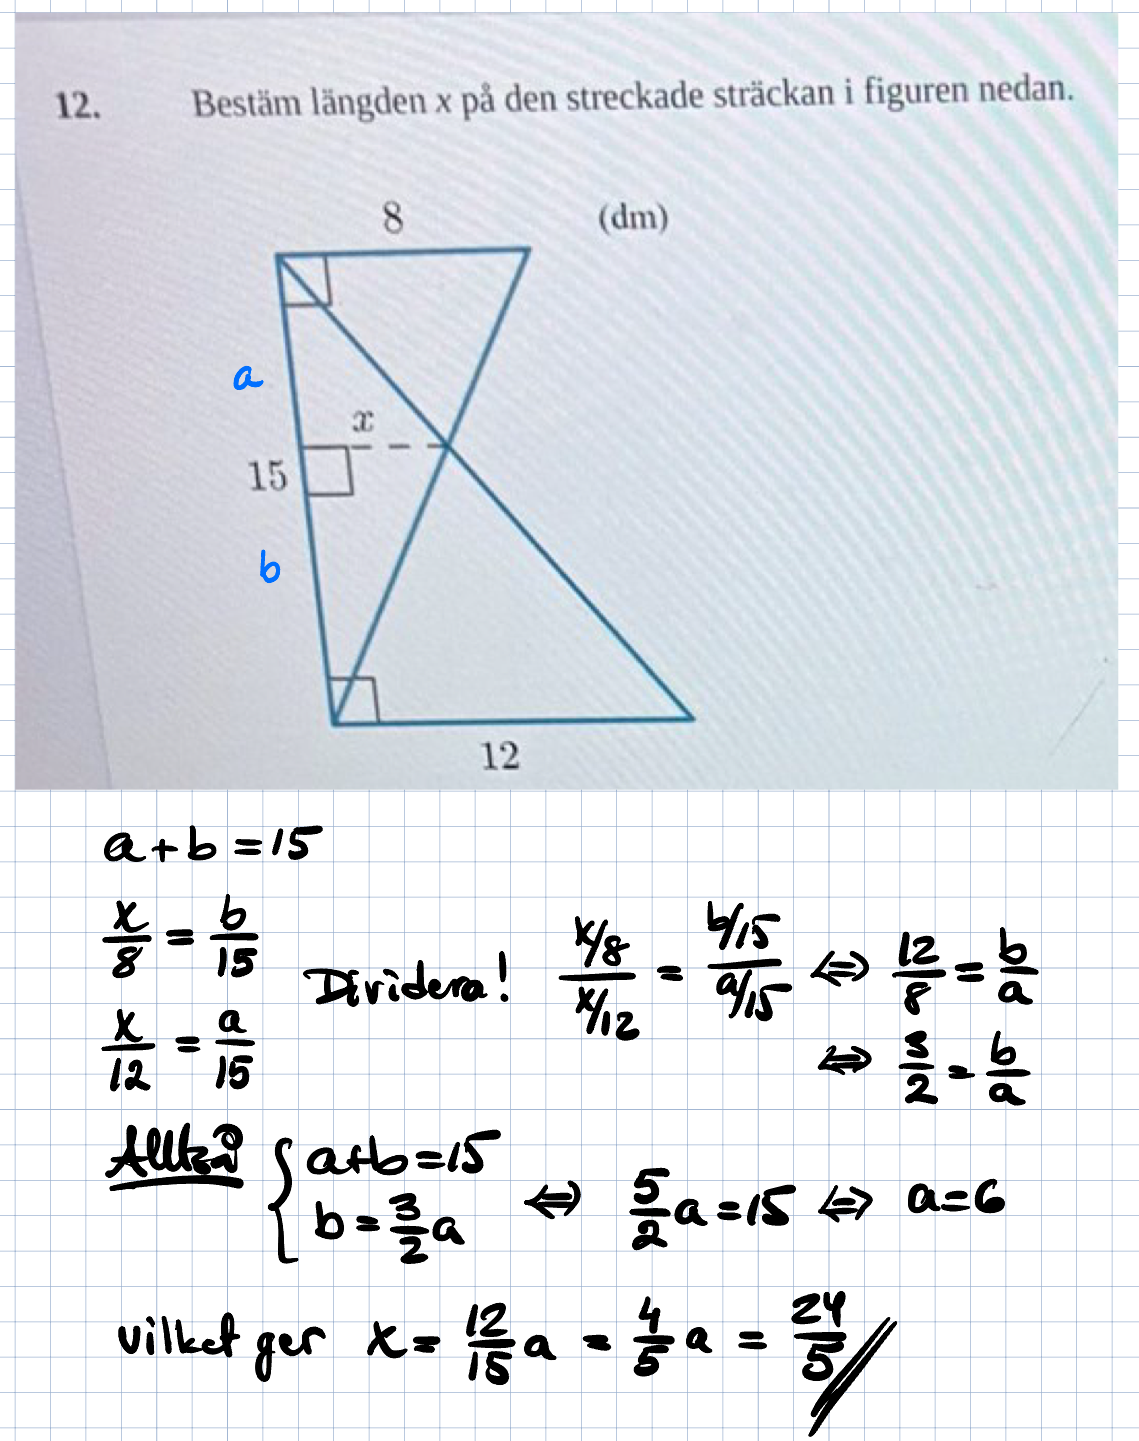 12. Bestäm längden x på den streckade sträckan i figuren nedan.
8 (dm)
a
x
15
b
12
a+b=15
x/8 = b/15
Dividera! (x/8)/(x/12) = (b/15)/(a/15) ⇔ 12/8 = b/a
x/12 = a/15
⇔ 3/2 = b/a
Alltså { a+b=15
b = 3/2 a ⇔ 5/2 a = 15 ⇔ a=6
vilket ger x = 12/15 a = 4/5 a = 24/5 //